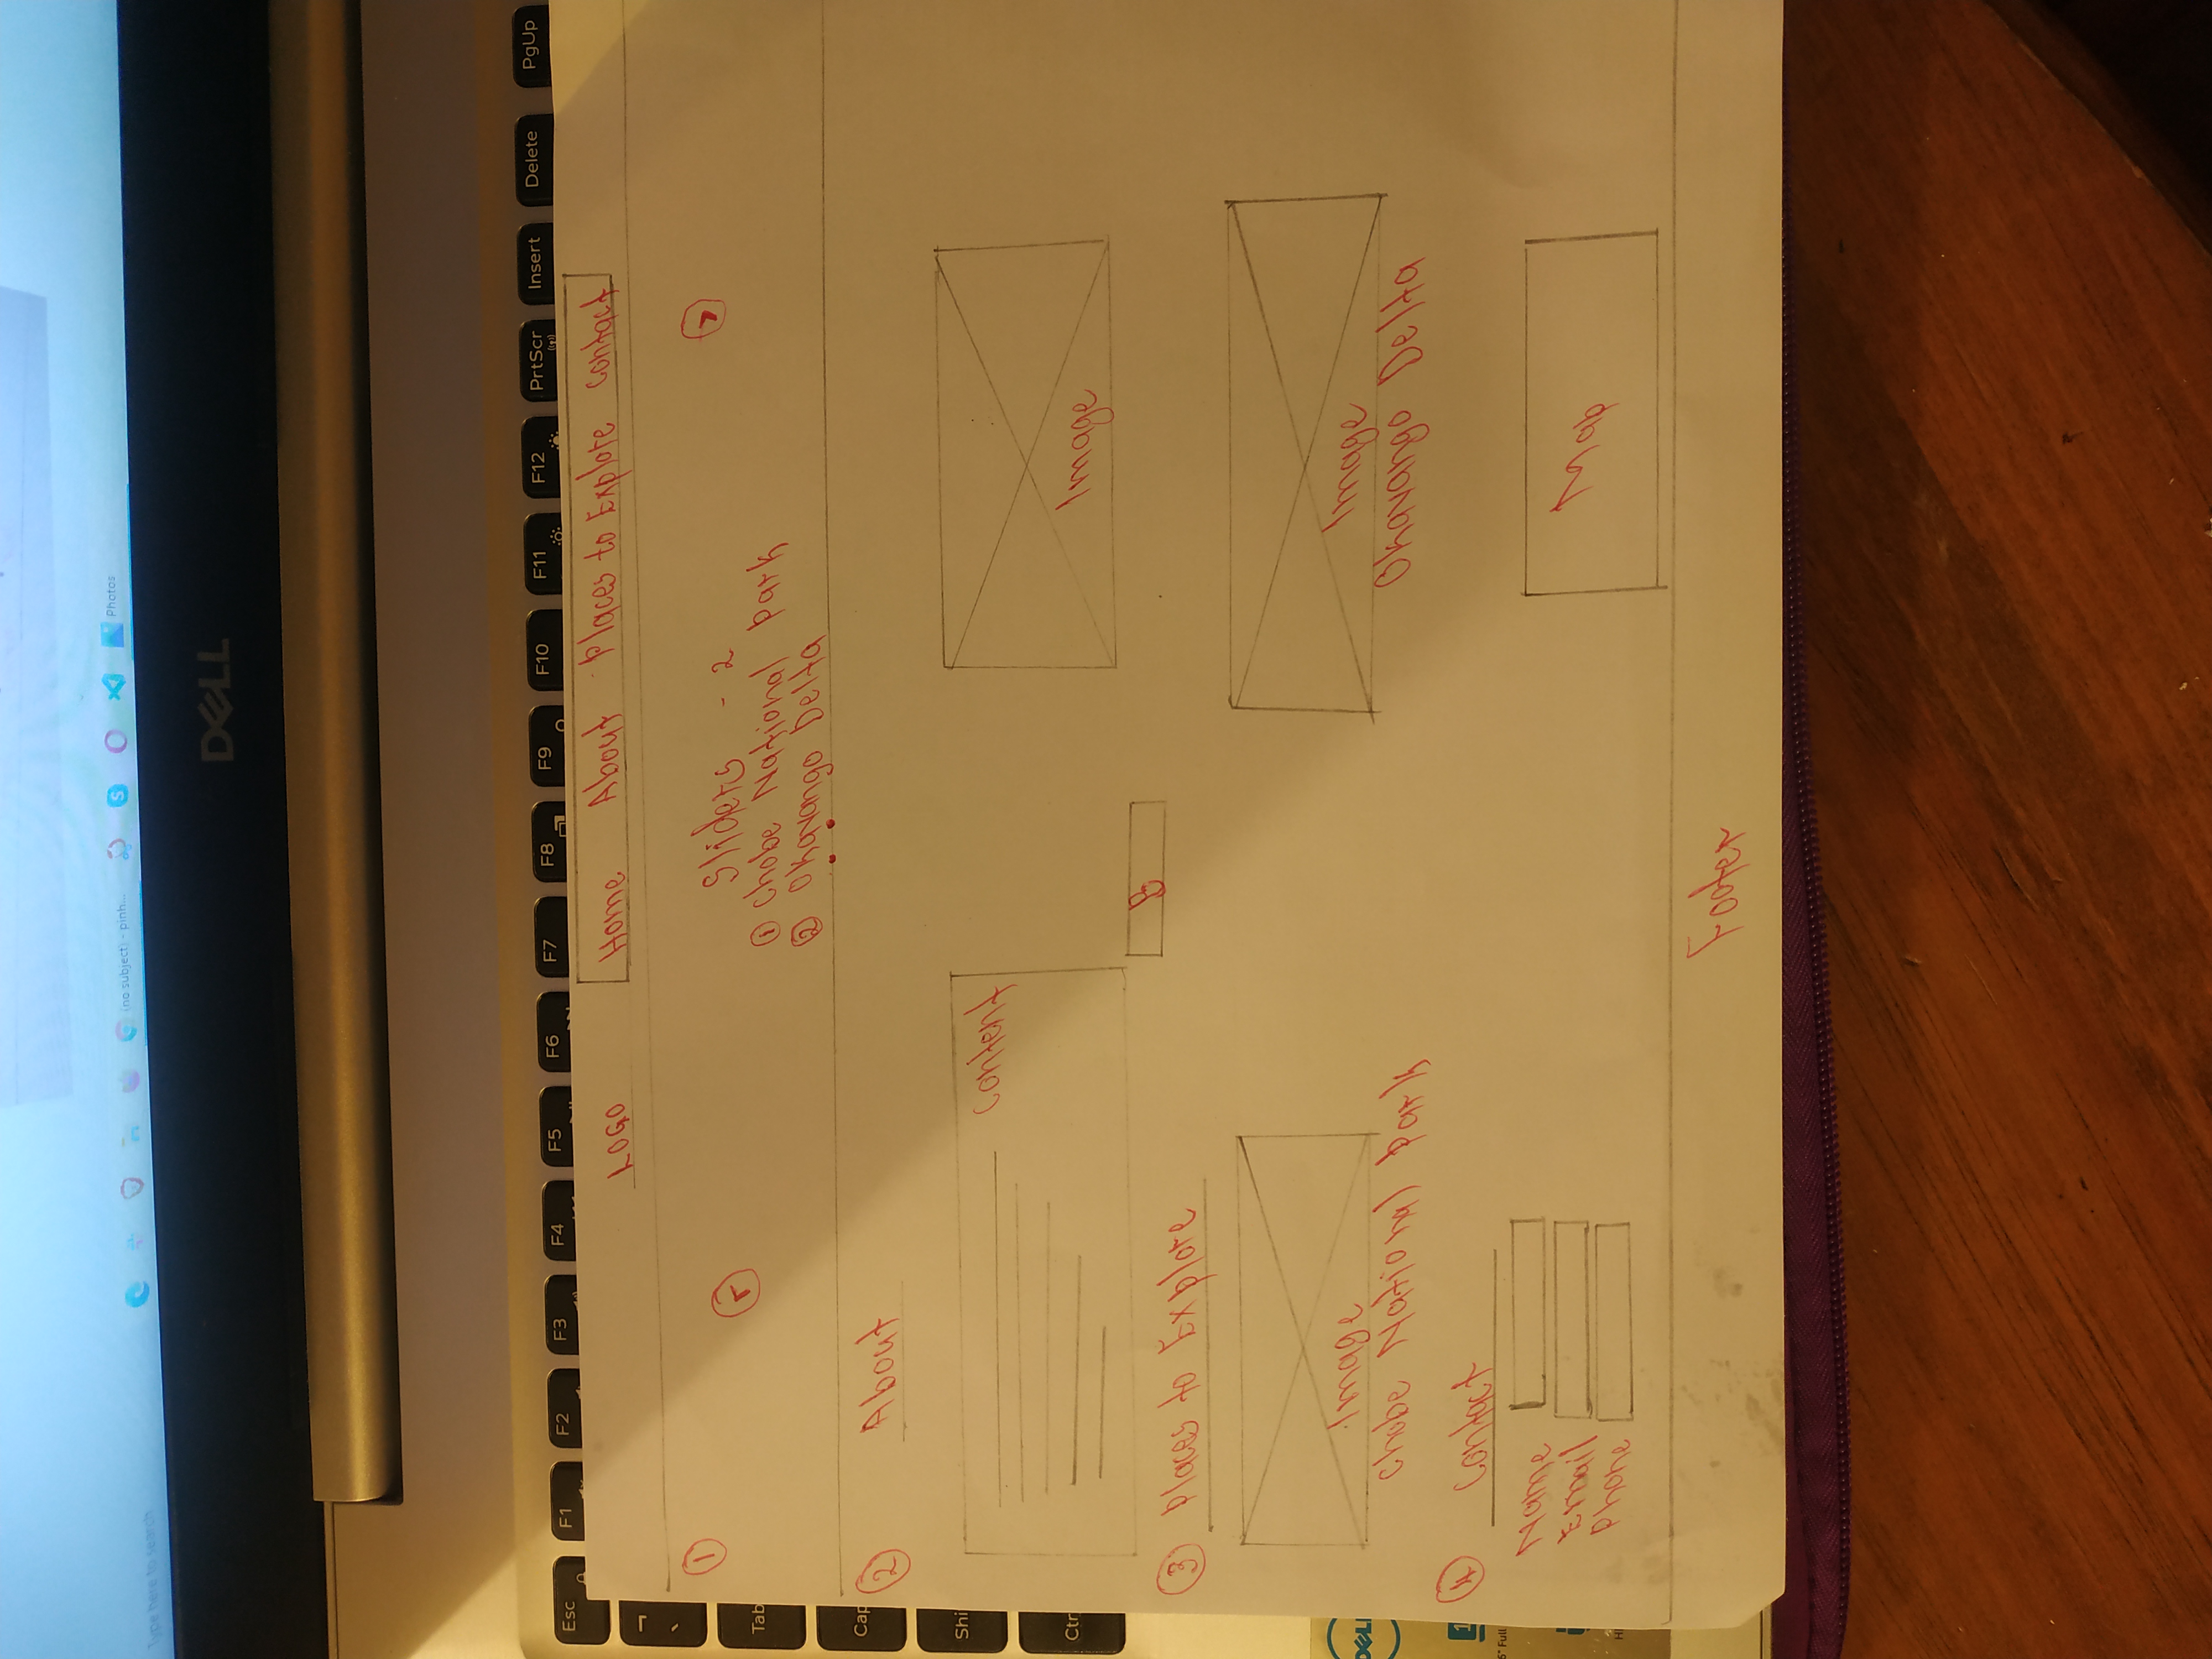 Type here to search
(no subject) - pinh...
Photos
DELL
Esc F1 F2 F3 F4 F5 F6 F7 F8 F9 F10 F11 F12 PrtScr Insert Delete PgUp
Tab
Cap
Shi
Ctr
DELL
LOGO Home About Places to Explore Contact
1 < Sliders - 2 >
1 Chobe National Park
2 Okavango Delta
2 About
Content
Image
B
3 Places to Explore
Image Image
Chobe National Park Okavango Delta
4 Contact
Name
Email
Phone
Map
Footer